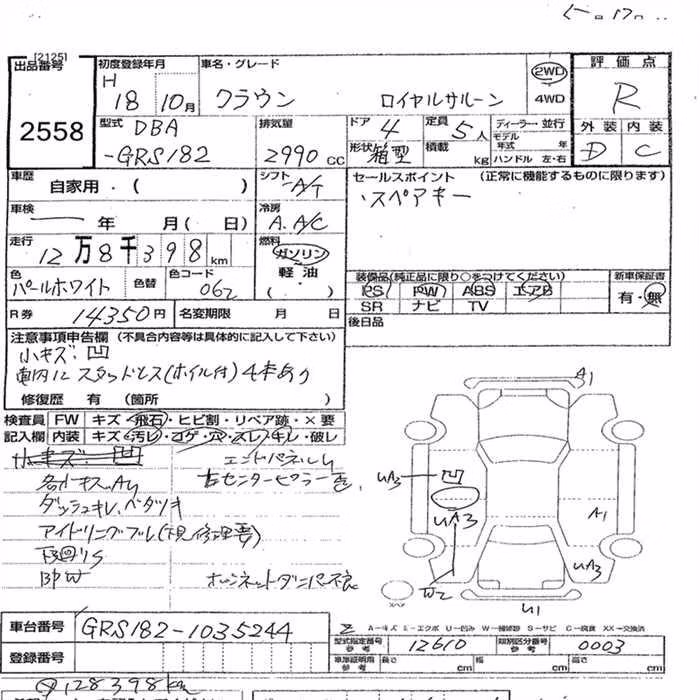 [2125]
出品番号 初度登録年月 車名・グレード 評価点
H 18 10月 クラウン ロイヤルサルーン 2WD 4WD R
2558
型式 DBA 排気量 ドア 4 定員 5人 ディーラー・並行 外装 内装
-GRS182 2990 CC 形状 箱型 積載 kg モデル年式 年 ハンドル 左・右 D C
車歴 自家用・( ) シフト A/T セールスポイント (正常に機能するものに限ります)
・スペアキー
車検 年 月( 日) 冷房 A.A/C
走行 12万8千398km 燃料 ガソリン
軽油
・( )
色 パールホワイト 色替 色コード 062
装備品(純正品に限り○をつけてください) 新車保証書
PS PW ABS エアB 有・無
SR ナビ TV
R券 14350円 名変期限 月 日 後日品
注意事項申告欄 (不具合内容等は具体的に記入して下さい)
小キズ 凹
車内に スタッドレス(ホイル付)4本あり
修復歴 有 (箇所 )
検査員 FW キズ・飛石・ヒビ割・リペア跡・×要
記入欄 内装 キズ・汚レ・コゲ・穴・スレ・キレ・破レ
小キズ 凹 エンドパネルU
各小キズ、AU 右センターピラー
ダッシュキレ、ベタツキ
アイドリングブレ(下見修理要)
下廻りS
BPW ボンネットダンパー不良
A1
UA3 凹
UA3
A1
UA3
W2
U1
車台番号 GRS182-1035244
A-キズ E-エクボ U-凹み W-補修跡 S-サビ C-腐食 XX-交換済
型式指定番号 参考 12610 類別区分番号 参考 0003
登録番号 車庫証明用 参考 長さ cm 幅 cm 高さ cm
128398km